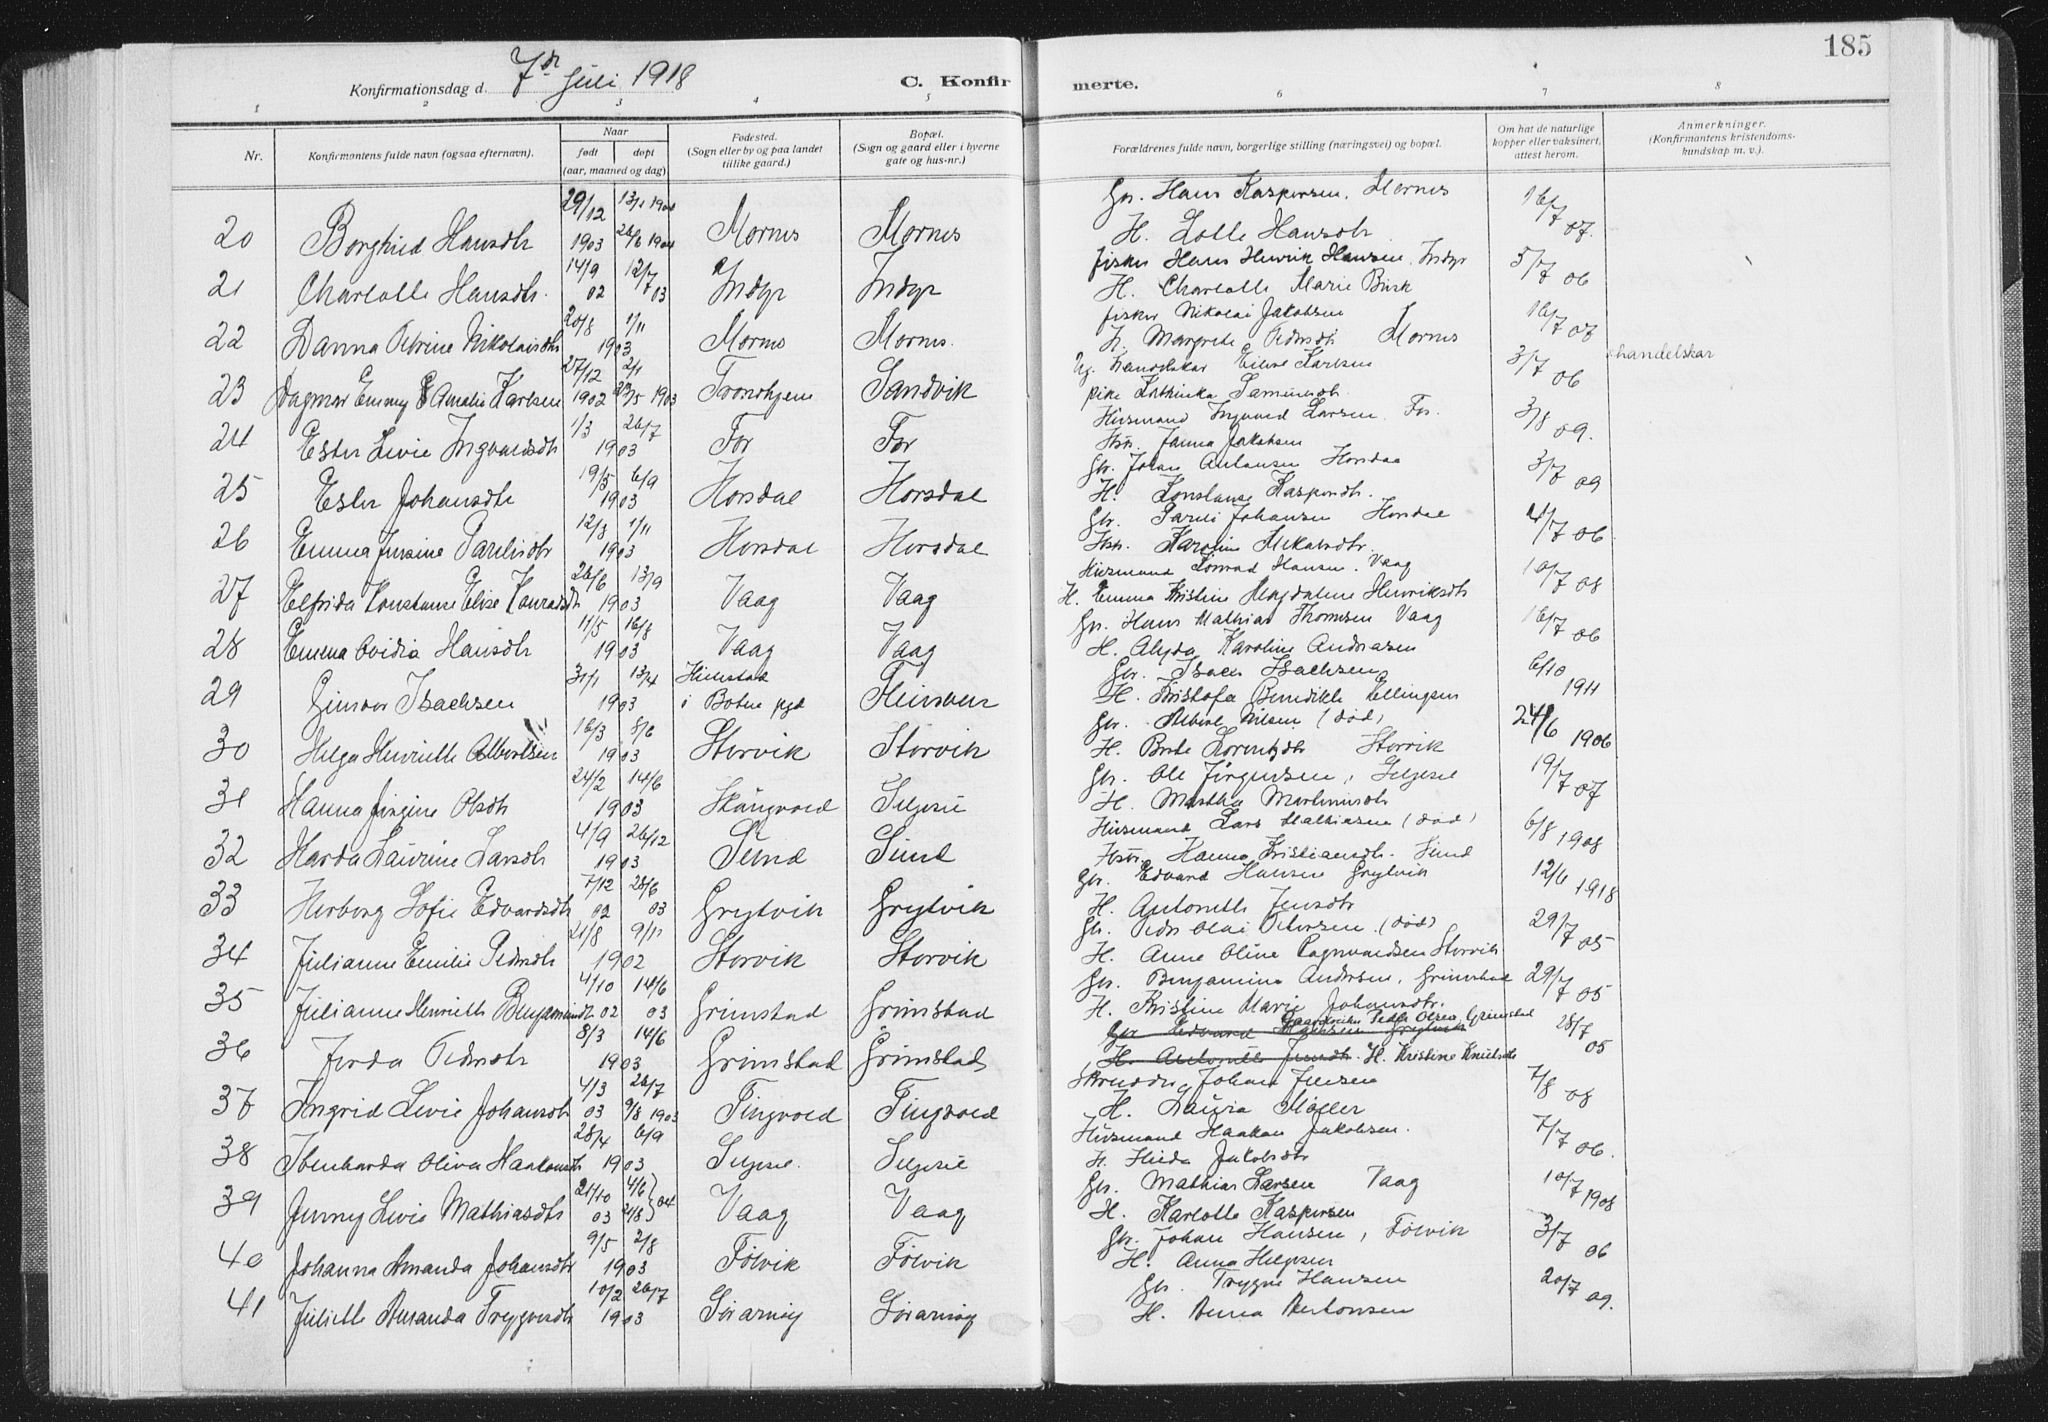 185
Konfirmationsdag d. 7de Juli 1918
C. Konfirmerte.
1 2 3 4 5 6 7 8
Nr.
Konfirmantens fulde navn (ogsaa efternavn).
Naar
født døpt
(aar, maaned og dag)
Fødested.
(Sogn eller by og paa landet
tillike gaard.)
Bopæl.
(Sogn og gaard eller i byerne
gate og hus-nr.)
Forældrenes fulde navn, borgerlige stilling (næringsvei) og bopæl.
Om hat de naturlige
kopper eller vaksinert,
attest herom.
Anmerkninger.
(Konfirmantens kristendoms-
kundskap m. v.).
20 Borghild Hansdtr 29/12 1903 13/11 1904 26/6 1904 Mornes Mornes Gbr. Hans Kaspersen, Mornes 16/7 07.
H. Lotte Hansdtr
21 Charlotte Hansdtr. 14/9 02 12/7 03 Indyr Indyr fisker Hans Henrik Hansen, Indyr 5/7 06
H. Charlotte Marie Birk
22 Danna Petrine Nikolaisdtr 20/8 1/11 1903 Mornes Mornes. fisker Nikolai Jakobsen 16/7 07
H. Margrete Pedersdtr Mornes
23 Dagmar Emmy Amalie Karlsen 27/12 1902 2/1 23/5 1903 Tronhjem Sandvik Ug. handelskar Karlsen 3/7 06 handelskar
pike Kathinka
24 Ester Livie Ingvaldsdtr 1/3 26/7 1903 For For Husmand Ingvald Larsen For. 3/8 09.
Hstr. Janna Jakobsen
25 Ester Johansdtr 19/5 6/9 1903 Horsdal Horsdal Gbr. Johan Antonsen Horsdal 3/7 09
H. Konstanse Kaspersdtr.
26 Emma Jensine Parelisdtr 12/3 1/11 1903 Horsdal Horsdal Gbr. Pareli Johansen Horsdal 4/7 06
Hstr. Karoline Mikalsdtr.
27 Elfrida Konstanse Elise Konradsdtr 26/6 13/9 1903 Vaag Vaag Husmand Konrad Hansen. Vaag 10/7 08
H. Emma Kristine Magdalene Henriksdtr
28 Emma Ovidia Hansdtr 11/5 16/8 1903 Vaag Vaag Gbr. Hans Mathias Thomsen Vaag 16/7 06
H. Alyda Karoline Andreasen
29 Gunvor Isachsen 31/1 13/4 1903 i Botne pgd Gbr. Isak Isachsen 6/10 1911
H. Kristofa Benedikte Ellingsen
30 Helga Henriette Albertsen 16/3 8/6 1903 Storvik Storvik Gbr. Albert Nilsen (død) 24/6 1906
H. Berte Lorentzdtr Storvik
31 Hanna Jørgine Olsdtr 24/2 14/6 1903 Skaugvold Seljeseie Gbr. Ole Jørgensen, Seljeseie 19/7 07
H. Martha Martinusdtr
32 Harda Laurine Larsdtr 4/9 26/12 1903 Sund Sund Husmand Lars Mathiasen (død) 6/8 1908
Hstr. Hanna Kristiansdtr. Sund
33 Herborg Sofie Edvardsdtr 7/12 02 28/6 03 Grytvik Grytvik Gbr. Edvard Hansen Grytvik 12/6 1918
H. Antonette Jensdtr
34 Julianne Emilie Pedersdtr 21/8 9/11 1902 Storvik Storvik Gbr. Peder Olai Petersen. (død) 29/7 05
H. Anne Oline Ragnvaldsen Storvik
35 Julianne Henriette Benjaminsdtr 4/10 02 14/6 03 Grimstad Grimstad Gbr. Benjamin Andersen, Grimstad 29/7 05
H. Kristine Marie Johansdtr.
36 Jerda Pedersdtr 8/3 14/6 1903 Grimstad Grimstad Gbr Edvard Hansen Grytvik Gaardbruker Peder Olsen, Grimstad 28/7 05
H. Antonette Jensdtr. H. Kristine Knutsdtr
37 Ingrid Livie Johansdtr 4/3 03 26/7 9/8 1903 Tingvold Tingvold Skrædder Johan Jensen 7/8 08
H. Laura Møller
38 Ibenharda Oliva Haakonsdtr 28/4 6/9 1903 Seljeseie. Seljeseie Husmand Haakon Jakobsen. 7/7 06.
H. Hilda Jakobsdtr
39 Jenny Livie Mathiasdtr 21/10 03 4/6 21/8 04 Vaag Vaag Gbr. Mathias Larsen Vaag 10/7 1908
H. Karlotte Kaspersen
40 Johanna Amanda Johansdtr 9/5 2/8 1903 Følvik Følvik Gbr. Johan Hansen, Følvik 3/7 06
H. Anna Helgesen
41 Juliette Amanda Trygvesdtr 10/2 26/7 1903 Sørarnøy Sørarnøy Gbr. Trygve Hansen 20/7 09.
H. Anna Antonsen